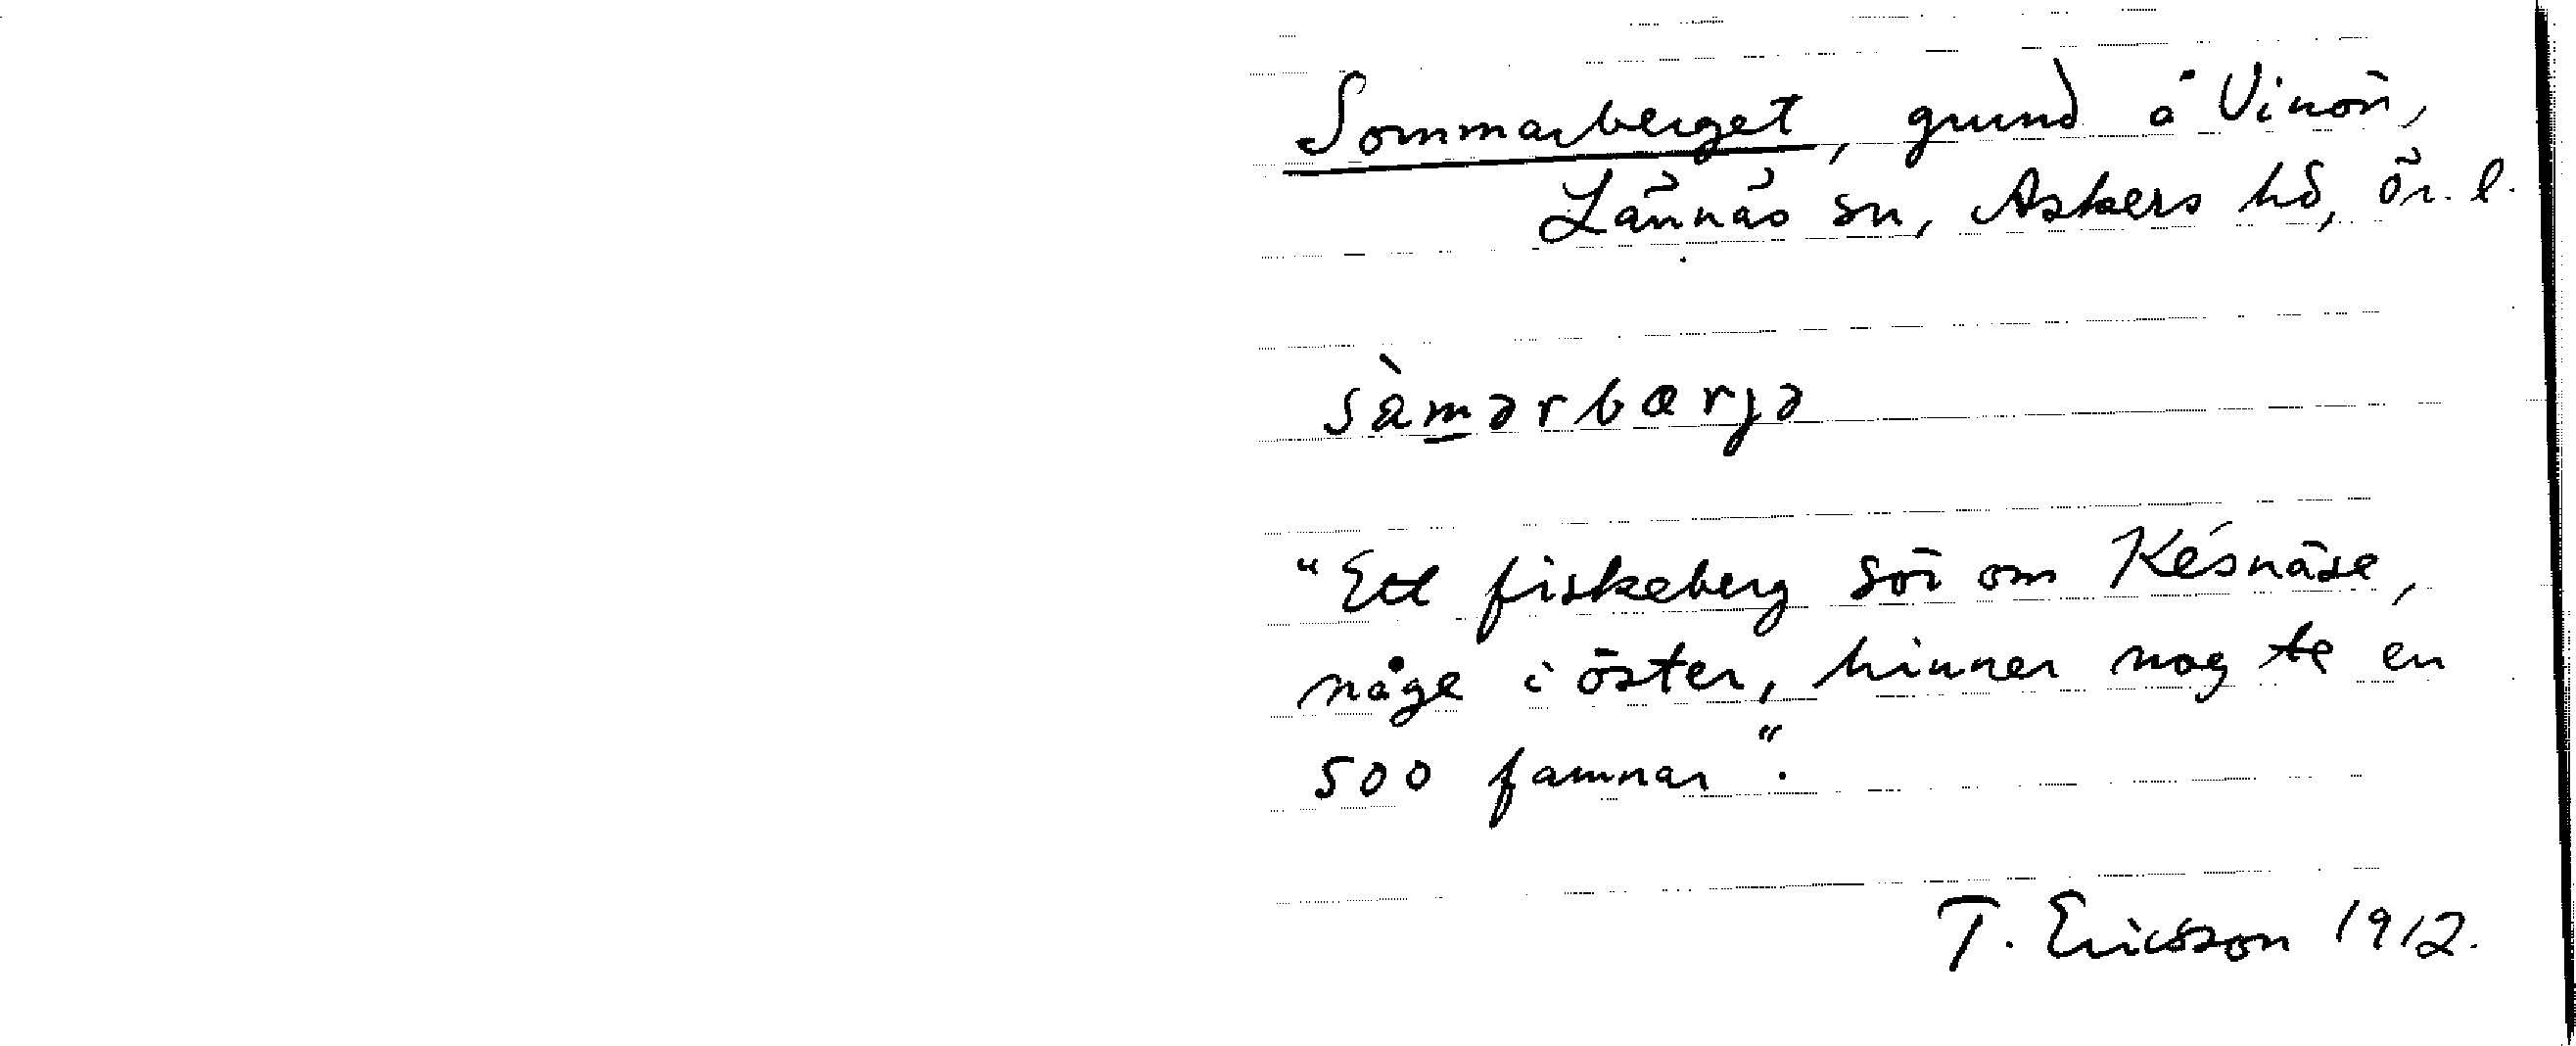 Sommarberget, grund å Vinön,
Lännäs sn, Askers hd, Ör. l.
sàmərbærjə
"Ett fiskeberg sör om Késnäse,
någe i öster, hinner nog te en
500 famnar".
T. Ericsson 1912.